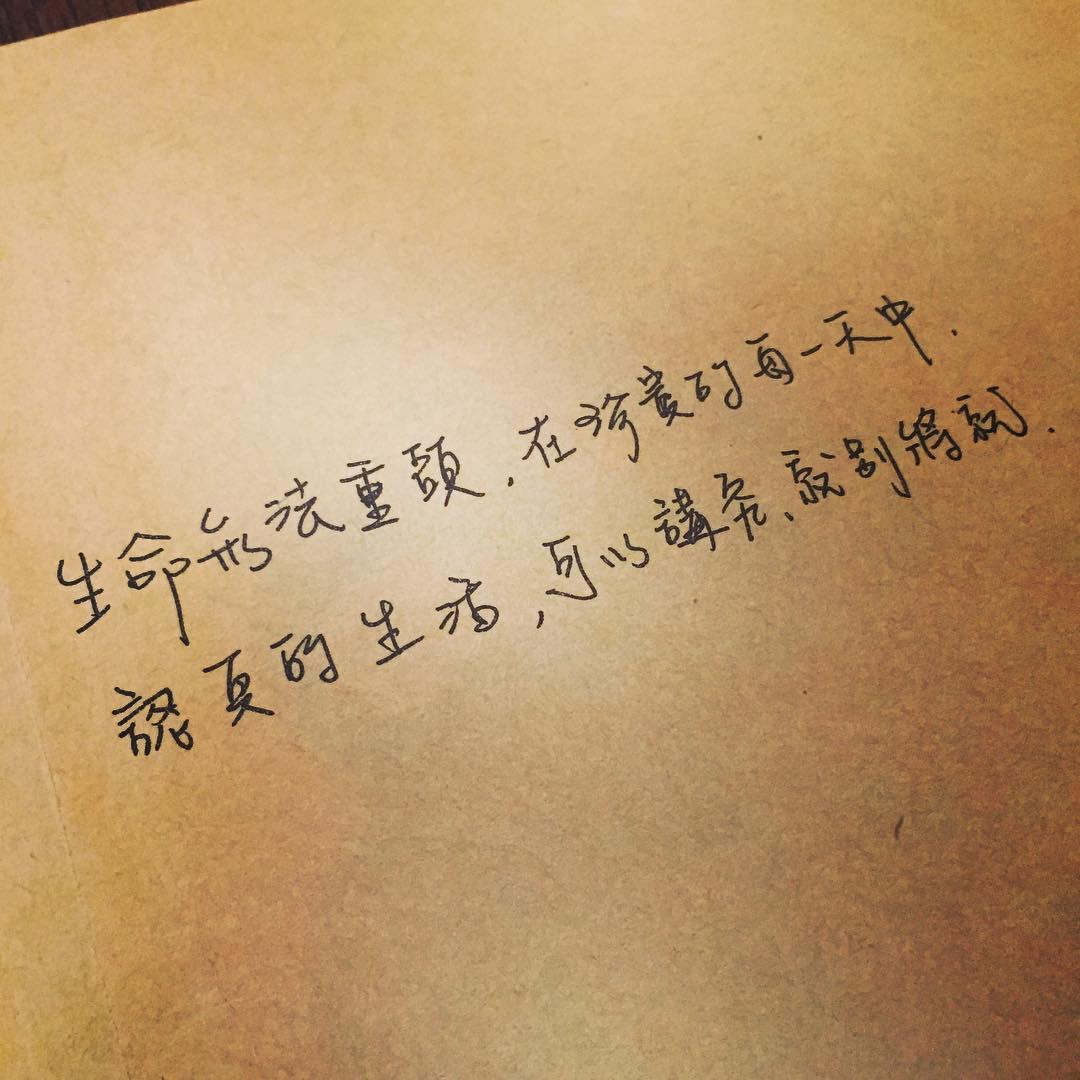 生命無法重頭，在珍貴的每一天中.
認真的生活，可以講究、就別將就.